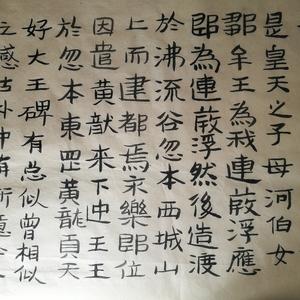 是皇天之子母河伯女
鄒牟王為我連葭浮應
即為連葭浮然後造渡
於沸流谷忽本西城山
上而建都焉永樂即位
因遣黄龍来下迎王王
於忽本東罡黄龍負天
好大王碑有忽似曾相似
之感古朴中有所意